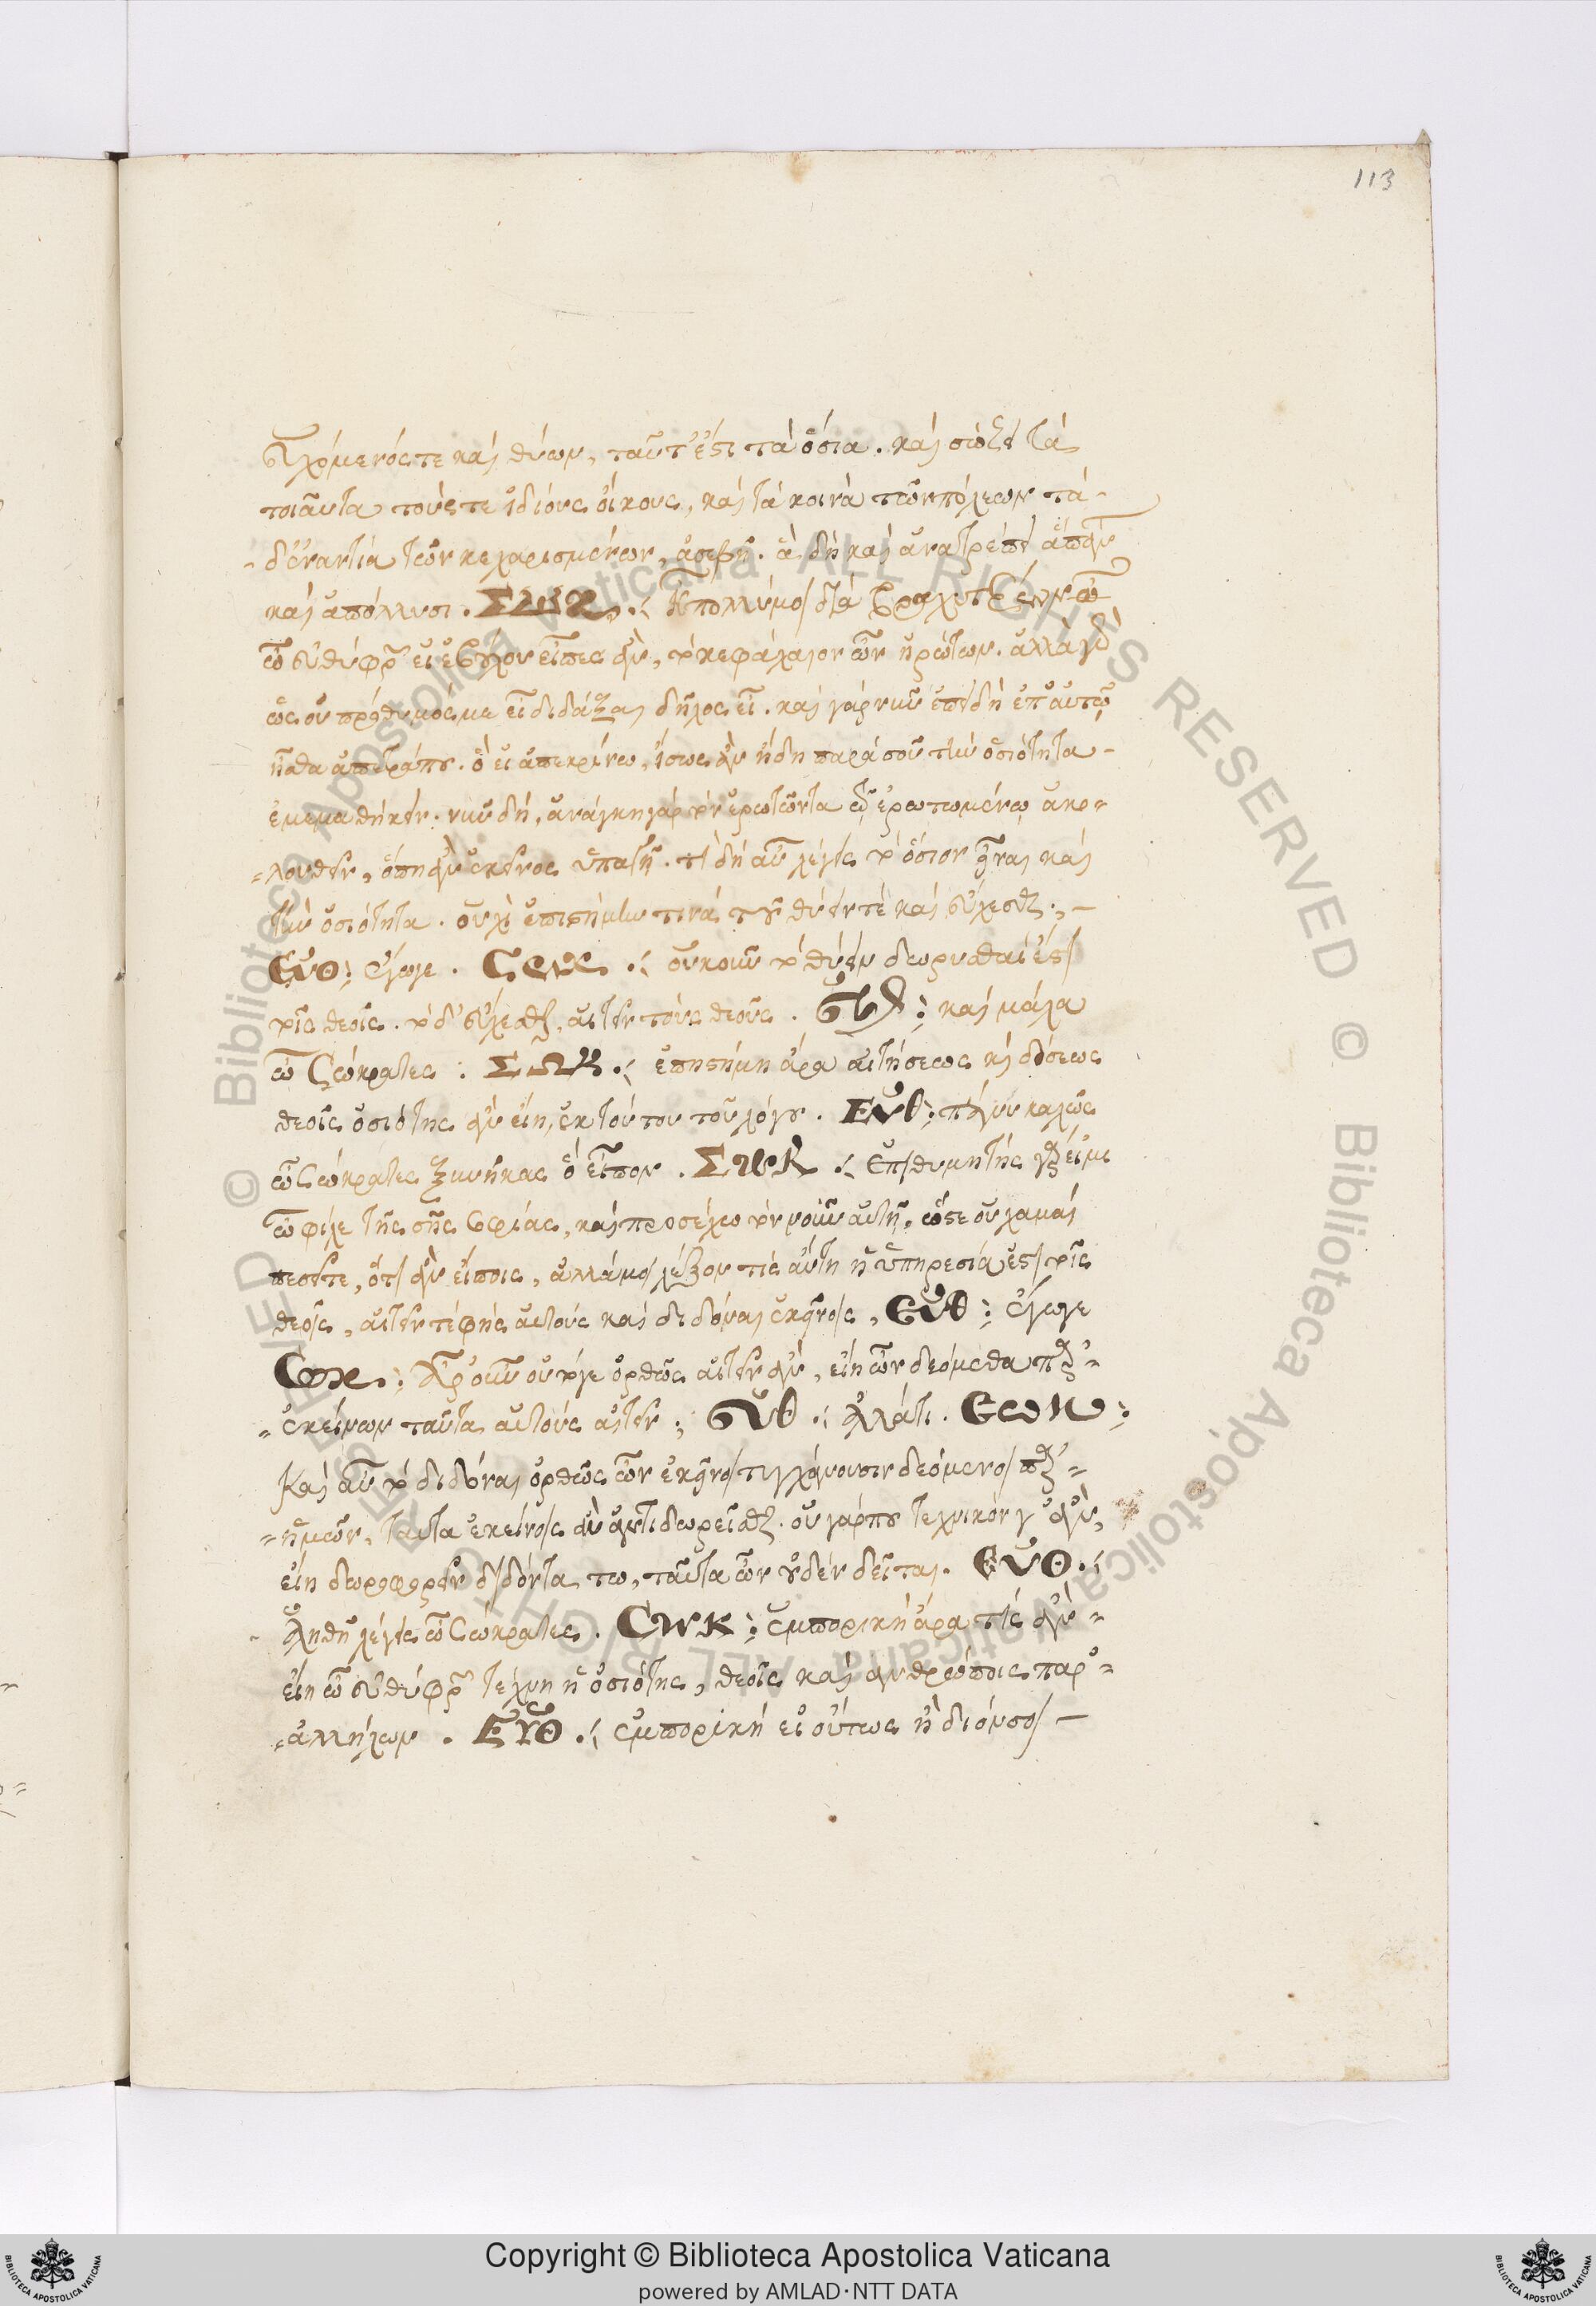 113
εὐχόμενός τε καὶ θύων, ταῦτ' ἔστι τὰ ὅσια. καὶ σώζει τὰ
τοιαῦτα τούς τε ἰδίους οἴκους, καὶ τὰ κοινὰ τῶν πόλεων τὰ -
- δ' ἐναντία τῶν κεχαρισμένων, ἀσεβῆ. ἃ δὴ καὶ ἀνατρέπει ἅπαντα
καὶ ἀπόλλυσι. ΣΩΚ. Ἦ πολύ μοι διὰ βραχυτέρων
ὦ εὐθύφρον εἰ ἐβούλου εἶπες ἂν, τὸ κεφάλαιον ὧν ἠρώτων. ἀλλὰ γὰρ
ὡς οὐ πρόθυμός με εἶ διδάξαι δῆλος εἶ. καὶ γὰρ νῦν ἐπειδὴ ἐπ' αὐτῷ
ἦσθα ἀπετράπου. ὃ εἰ ἀπεκρίνω, ἴσως ἂν ἤδη παρὰ σοῦ τὴν ὁσιότητα -
ἐμεμαθήκειν. νῦν δὴ, ἀνάγκη γὰρ τὸν ἐρωτῶντα τῷ ἐρωτωμένῳ ἀκο=
=λουθεῖν, ὅπη ἂν ἐκεῖνος ὑπάγῃ. τί δὴ αὖ λέγεις τὸ ὅσιον εἶναι καὶ
τὴν ὁσιότητα. οὐχὶ ἐπιστήμην τινὰ τοῦ θύειν τε καὶ εὔχεσθαι. -
ΕΥΘ: ἔγωγε. ΣΩΚ. οὐκοῦν τὸ θύειν δωρεῖσθαι ἐστὶ
τοῖς θεοῖς. τὸ δ' εὔχεσθαι, αἰτεῖν τοὺς θεούς. ΕΥΘ: καὶ μάλα
ὦ Σώκρατες: ΣΩΚ. ἐπιστήμη ἄρα αἰτήσεως καὶ δόσεως
θεοῖς ὁσιότης ἂν εἴη, ἐκ τούτου τοῦ λόγου. ΕΥΘ: πάνυ καλῶς
ὦ Σώκρατες ξυνῆκας ὃ εἶπον. ΣΩΚ. Ἐπιθυμητὴς γάρ εἰμι
ὦ φίλε τῆς σῆς σοφίας, καὶ προσέχω τὸν νοῦν αὐτῇ, ὥστε οὐ χαμαὶ
πεσεῖται, ὅτι ἂν εἴποις, ἀλλά μοι λέξον τίς αὕτη ἡ ὑπηρεσία ἐστὶ τοῖς
θεοῖς, αἰτεῖν τε φῂς αὐτοὺς καὶ διδόναι ἐκείνοις, ΕΥΘ: ἔγωγε
Σωκ.: Ἆρ' οὖν οὐ τό γε ὀρθῶς αἰτεῖν ἂν, εἴη ὧν δεόμεθα παρ' =
= ἐκείνων ταῦτα αὐτοὺς αἰτεῖν; ΕΥΘ. ἀλλὰ τί. ΣωΚ:
Καὶ αὖ τὸ διδόναι ὀρθῶς ὧν ἐκεῖνοι τυγχάνουσιν δεόμενοι παρ' =
= ἡμῶν, ταῦτα ἐκείνοις αὖ ἀντιδωρεῖσθαι. οὐ γάρ που τεχνικόν γ' ἂν,
εἴη δωροφορεῖν διδόντα τω, ταῦτα ὧν οὐδὲν δεῖται. ΕΥΘ.
ἀληθῆ λέγεις ὦ Σώκρατες. ΣΩΚ: ἐμπορικὴ ἄρα τίς ἂν =
εἴη ὦ εὐθύφρον τέχνη ἡ ὁσιότης, θεοῖς καὶ ἀνθρώποις παρ' =
= ἀλλήλων. ΕΥΘ. ἐμπορικὴ εἰ οὕτως
Copyright © Biblioteca Apostolica Vaticana
powered by AMLAD·NTT DATA